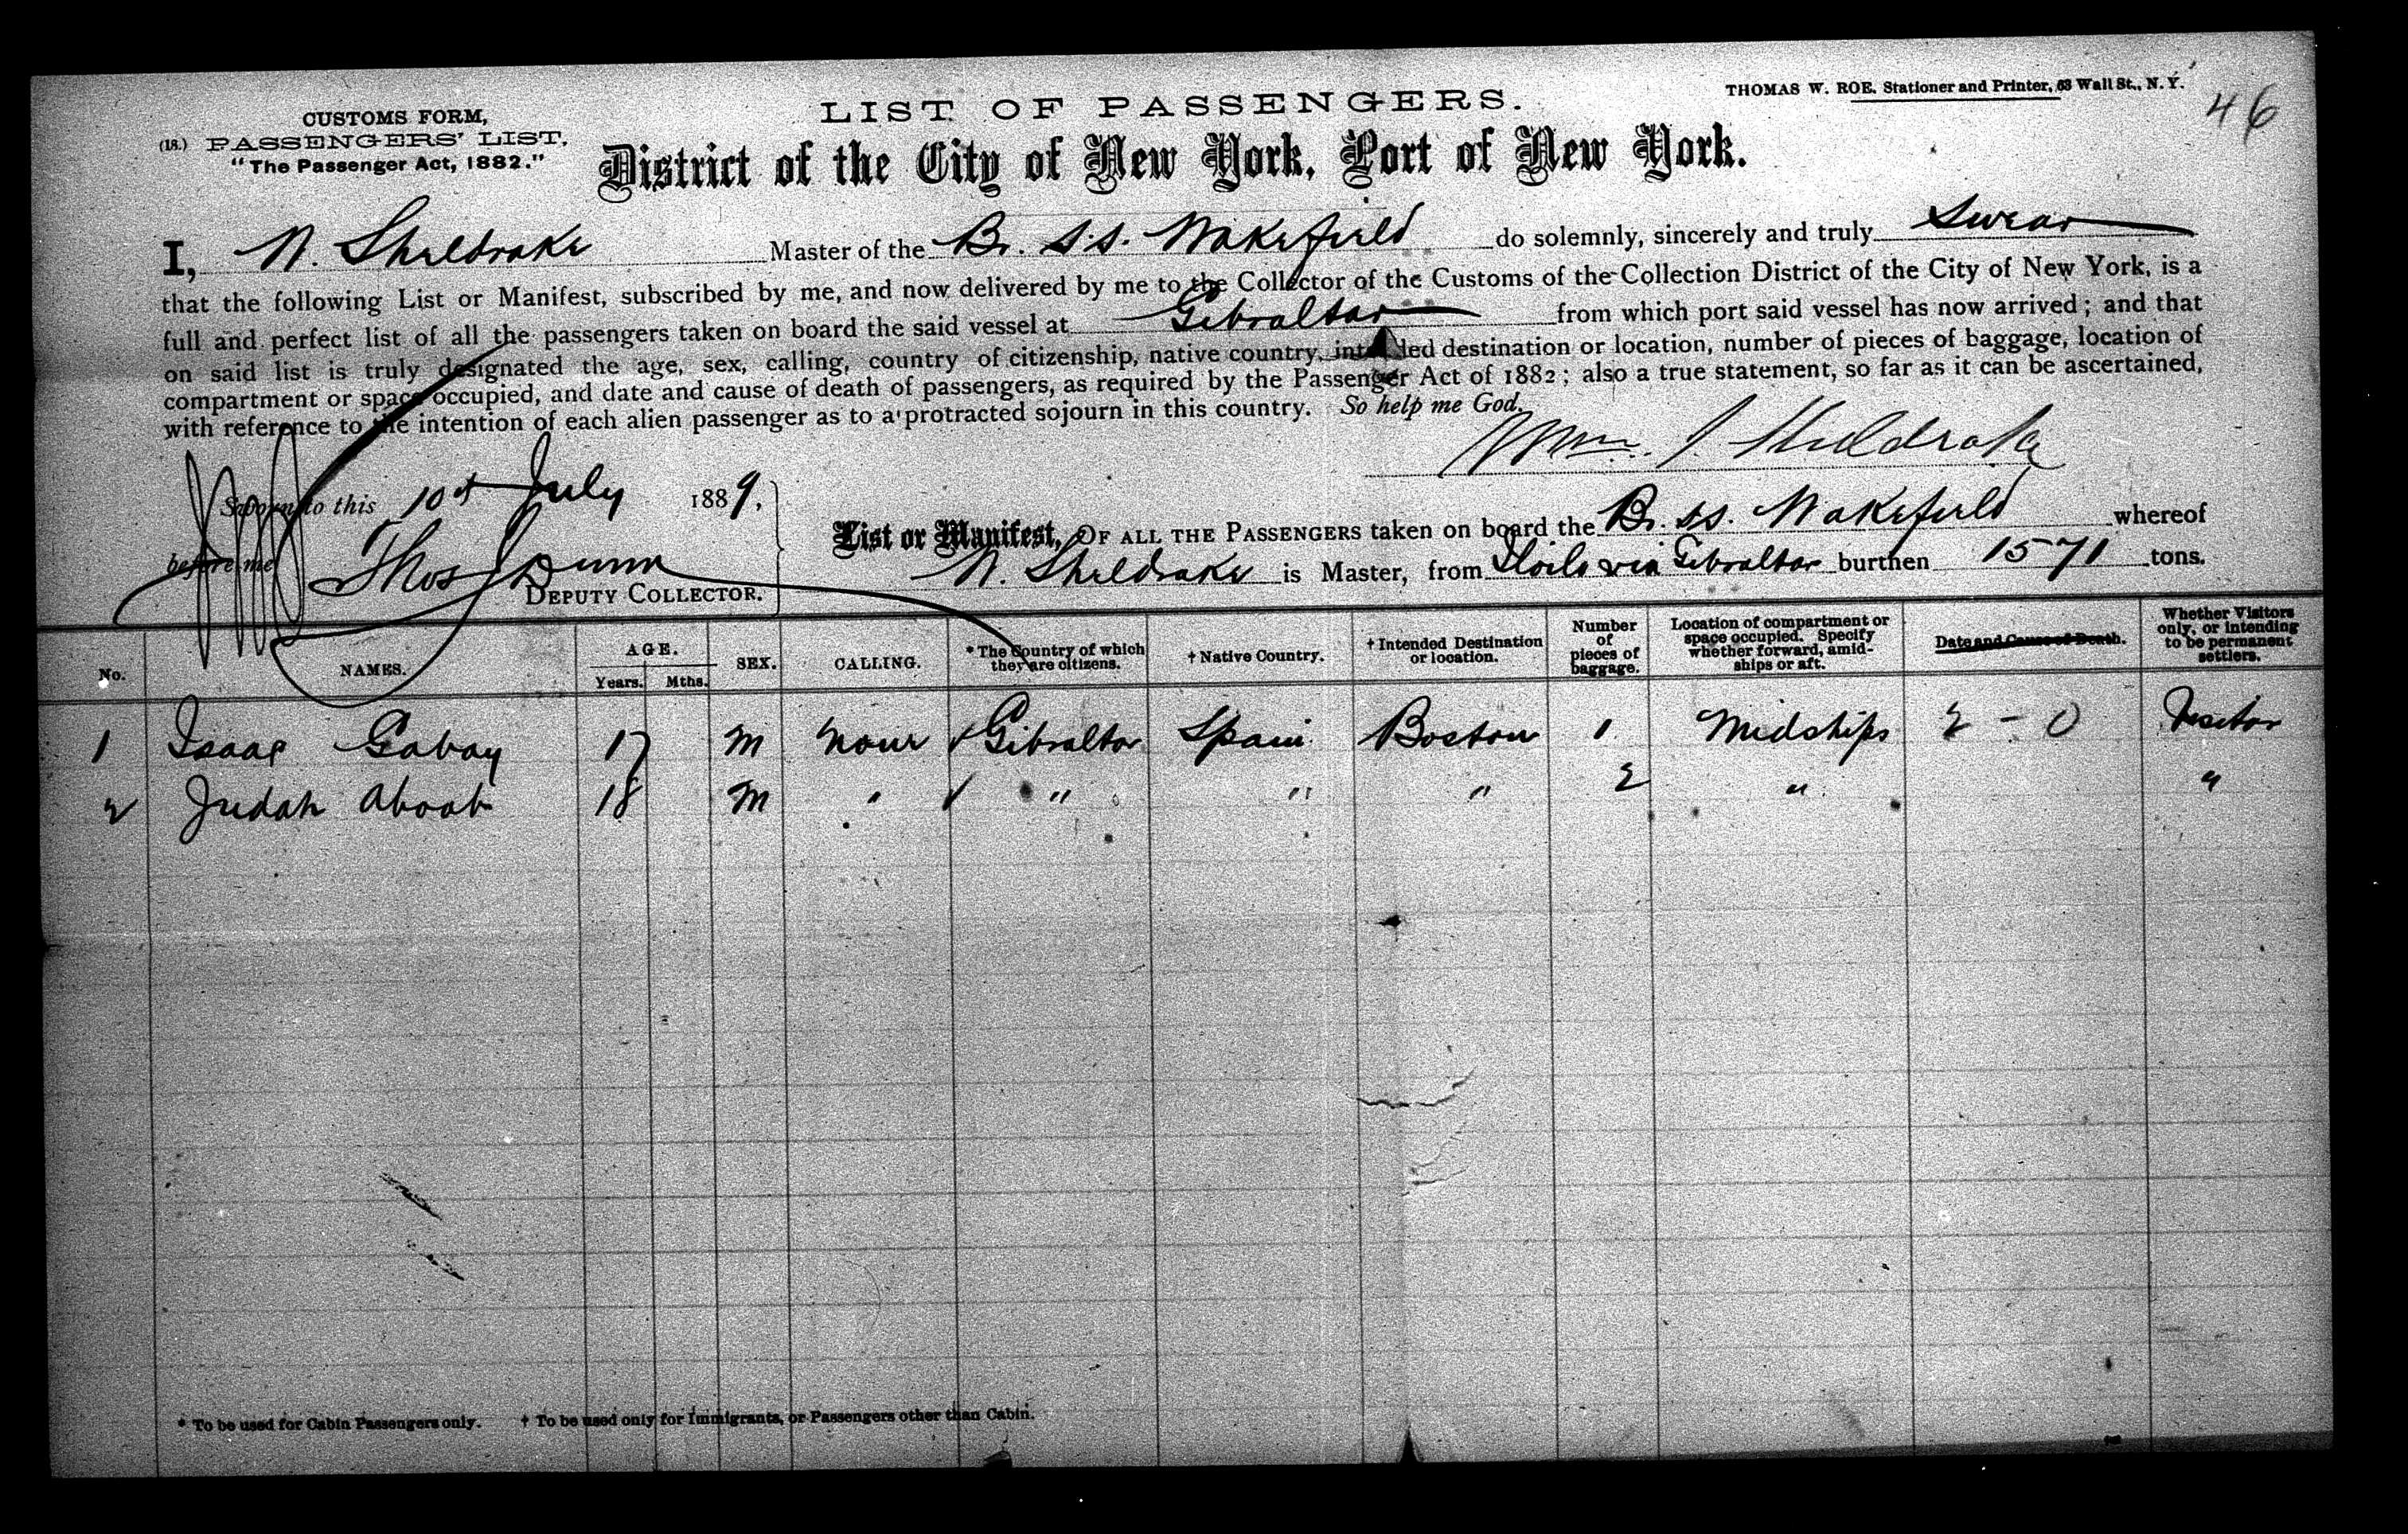 THOMAS W. ROE, Stationer and Printer, 63 Wall St., N. Y.
46
CUSTOMS FORM,
(18.) PASSENGERS' LIST,
"The Passenger Act, 1882."
LIST OF PASSENGERS.
District of the City of New York, Port of New York.
I, W. Sheldrake Master of the Br. S.S. Wakefield do solemnly, sincerely and truly Swear
that the following List or Manifest, subscribed by me, and now delivered by me to the Collector of the Customs of the Collection District of the City of New York, is a
full and perfect list of all the passengers taken on board the said vessel at Gibraltar from which port said vessel has now arrived; and that
on said list is truly designated the age, sex, calling, country of citizenship, native country, intended destination or location, number of pieces of baggage, location of
compartment or space occupied, and date and cause of death of passengers, as required by the Passenger Act of 1882; also a true statement, so far as it can be ascertained,
with reference to the intention of each alien passenger as to a protracted sojourn in this country. So help me God.
Wm. J. Sheldrake
Sworn to this 10th July 1889,
before me Thos J Dunn
DEPUTY COLLECTOR.
List or Manifest, OF ALL THE PASSENGERS taken on board the Br. SS. Wakefield whereof
W. Sheldrake is Master, from Iloilo via Gibraltar burthen 1571 tons.
No. NAMES. AGE. Years. Mths. SEX. CALLING. * The Country of which they are citizens. † Native Country. † Intended Destination or location. Number of pieces of baggage. Location of compartment or space occupied. Specify whether forward, amidships or aft. Date and Cause of Death. Whether Visitors only, or intending to be permanent settlers.
1 Isaac Gabay 17 M None ✓ Gibraltar Spain Boston 1 Midships 2 - 0 Visitor
2 Judah Aboab 18 M " ✓ " " " 2 " "
* To be used for Cabin Passengers only. † To be used only for Immigrants, or Passengers other than Cabin.